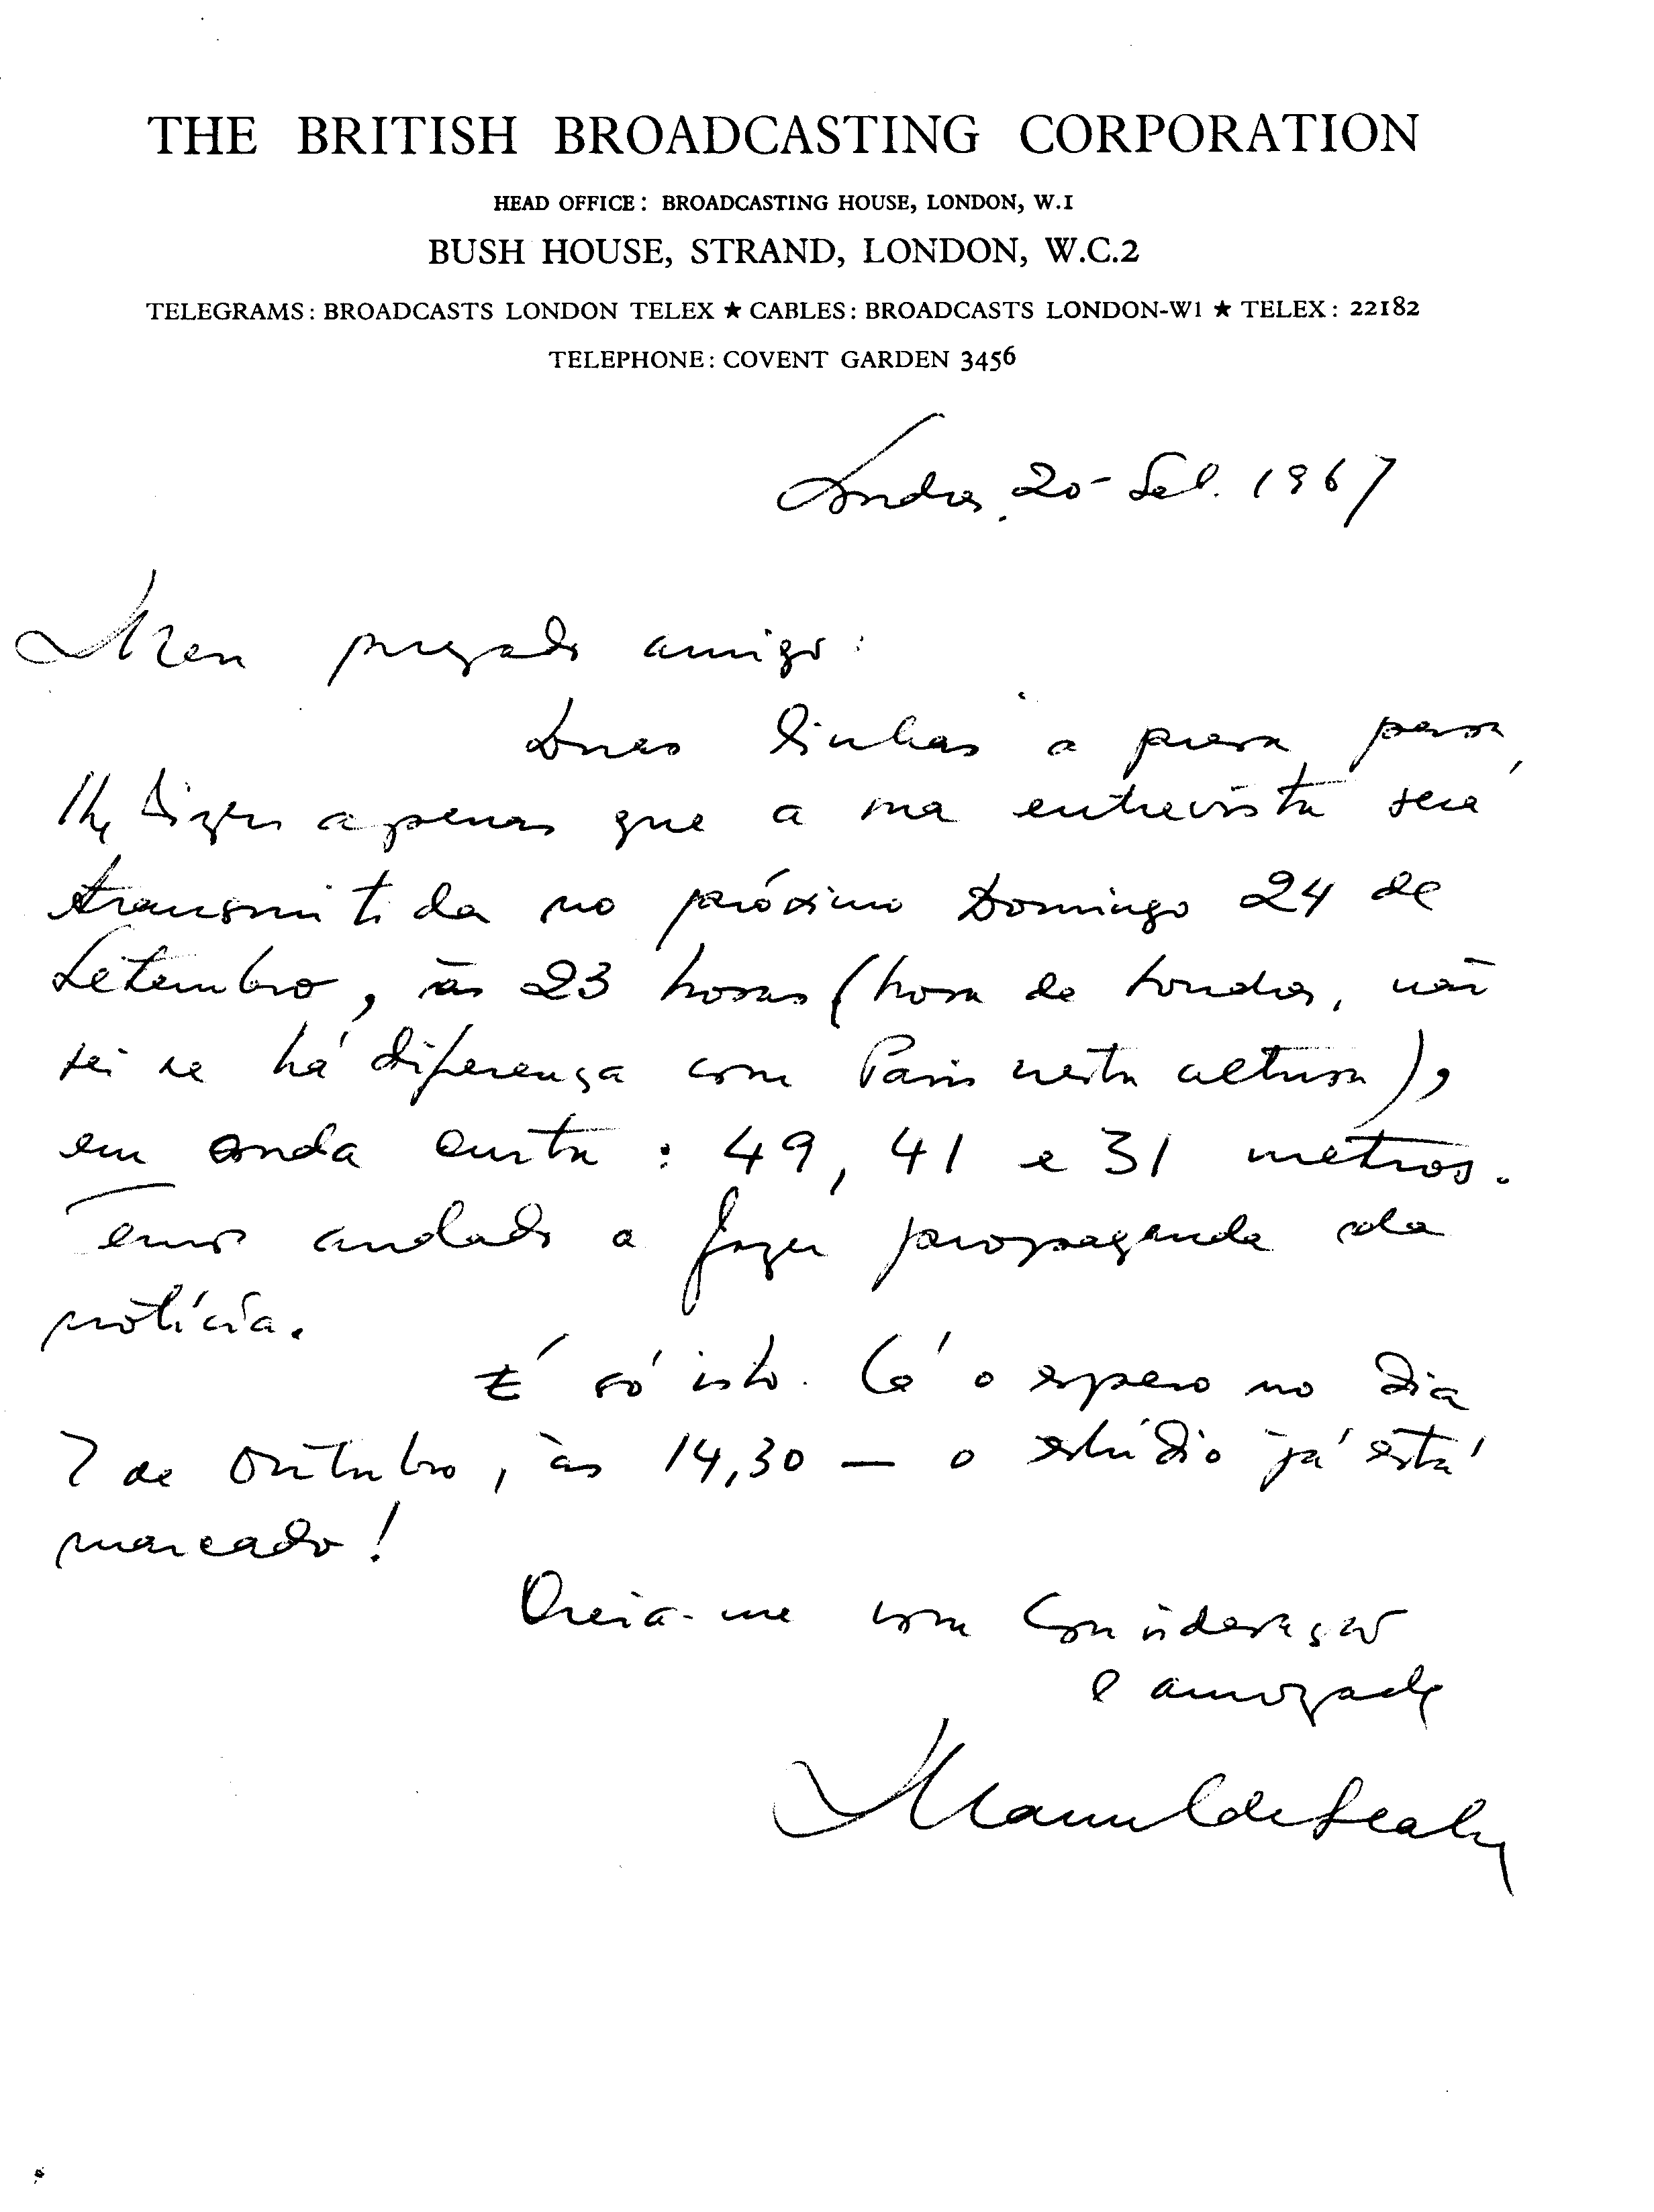 THE BRITISH BROADCASTING CORPORATION
HEAD OFFICE: BROADCASTING HOUSE, LONDON, W.1
BUSH HOUSE, STRAND, LONDON, W.C.2
TELEGRAMS: BROADCASTS LONDON TELEX ★ CABLES: BROADCASTS LONDON-W1 ★ TELEX: 22182
TELEPHONE: COVENT GARDEN 3456
Londres, 20-Set. 1967
Meu prezado amigo:
Duas linhas à pressa para
lhe dizer apenas que a sua entrevista será
transmitida no próximo Domingo 24 de
Setembro, às 23 horas (hora de Londres, não
sei se há diferença com Paris nesta altura),
em onda curta: 49, 41 e 31 metros.
Temos andado a fazer propaganda da
notícia.
É só isto. Cá o espero no dia
7 de Outubro, às 14,30 — o estúdio já está
marcado!
Creia-me com consideração
e amizade
Manuel de